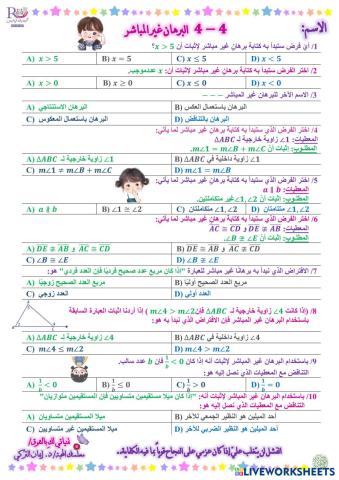 الاسم:
4 – 4 البرهان غير المباشر
1/ أي فرض ستبدأ به كتابة برهان غير مباشر لإثبات أن x > 5؟
A) x > 5 B) x = 5 C) x ≤ 5 D) x < 5
2/ اختر الفرض الذي ستبدأ به كتابة برهان غير مباشر لإثبات أن: x عدد موجب.
A) x > 0 B) x ≥ 0 C) x ≤ 0 D) x < 0
3/ الاسم الآخر للبرهان غير المباشر – – –
A) البرهان الاستنتاجي B) البرهان باستعمال العكس
C) البرهان باستعمال المعكوس D) البرهان بالتناقض
4/ اختر الفرض الذي ستبدأ به كتابة برهان غير مباشر لما يأتي:
المعطيات: ∠1 زاوية خارجية لـ ΔABC
المطلوب: إثبات أن m∠1 = m∠B + m∠C.
A) ∠1 زاوية خارجية لـ ΔABC B) ∠1 زاوية داخلية في ΔABC
C) m∠1 ≠ m∠B + m∠C D) m∠1 = m∠B
5/ اختر الفرض الذي ستبدأ به كتابة برهان غير مباشر لما يأتي:
المعطيات: a ∦ b
المطلوب: إثبات أن ∠1, ∠2 غير متكاملتين.
A) a ∦ b B) ∠1 ≅ ∠2 C) ∠1, ∠2 متكاملتان D) ∠1, ∠2 متتامتان
6/ اختر الفرض الذي ستبدأ به كتابة برهان غير مباشر لما يأتي:
C) ∠B ≅ ∠E D) ∠B ≇ ∠E
7/ الافتراض الذي نبدأ به برهانًا غير مباشر للعبارة "إذا كان مربع عدد صحيح فرديًا فإن العدد فردي" هو:
A) مربع العدد الصحيح زوجيًا B) مربع العدد الصحيح أوليًا
C) العدد زوجي D) العدد أولي
8/ (إذا كانت ∠4 زاوية خارجية لـ ΔABC فإن m∠4 > m∠2) إذا أردنا إثبات العبارة السابقة
باستخدام البرهان غير المباشر فإن الافتراض الذي نبدأ به هو:
A) ∠4 زاوية خارجية لـ ΔABC B) ∠4 زاوية داخلية في ΔABC
C) m∠4 ≤ m∠2 D) m∠4 > m∠2
9/ باستخدام البرهان غير المباشر لإثبات أنه إذا كان 1/b < 0 فإن b عدد سالب.
التناقض مع المعطيات الذي نصل إليه هو:
A) 1/b < 0 B) 1/b ≤ 0 C) 1/b > 0 D) 1/b = 0
10/ باستخدام البرهان غير المباشر لإثبات أنه: "إذا كان ميلا مستقيمين متساويين فإن المستقيمين متوازيان"
التناقض مع المعطيات الذي نصل إليه هو:
A) ميلا المستقيمين متساويان B) أحد الميلين هو النظير الجمعي للآخر
C) ميلا المستقيمين غير متساويين D) أحد الميلين هو النظير الضربي للآخر
LIVEWORKSHEETS